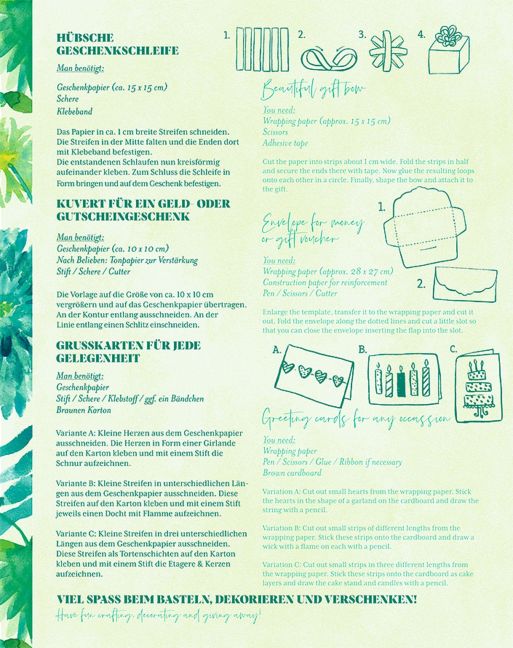 HÜBSCHE
GESCHENKSCHLEIFE
Man benötigt:
Geschenkpapier (ca. 15 x 15 cm)
Schere
Klebeband
Das Papier in ca. 1 cm breite Streifen schneiden.
Die Streifen in der Mitte falten und die Enden dort
mit Klebeband befestigen.
Die entstandenen Schlaufen nun kreisförmig
aufeinander kleben. Zum Schluss die Schleife in
Form bringen und auf dem Geschenk befestigen.
1.
2.
3.
4.
Beautiful gift bow
You need:
Wrapping paper (approx. 15 x 15 cm)
Scissors
Adhesive tape
Cut the paper into strips about 1 cm wide. Fold the strips in half
and secure the ends there with tape. Now glue the resulting loops
onto each other in a circle. Finally, shape the bow and attach it to
the gift.
KUVERT FÜR EIN GELD- ODER
GUTSCHEINGESCHENK
Man benötigt:
Geschenkpapier (ca. 10 x 10 cm)
Nach Belieben: Tonpapier zur Verstärkung
Stift / Schere / Cutter
Die Vorlage auf die Größe von ca. 10 x 10 cm
vergrößern und auf das Geschenkpapier übertragen.
An der Kontur entlang ausschneiden. An der
Linie entlang einen Schlitz einschneiden.
1.
2.
Envelope for money
or gift voucher
You need:
Wrapping paper (approx. 28 x 27 cm)
Construction paper for reinforcement
Pen / Scissors / Cutter
Enlarge the template, transfer it to the wrapping paper and cut it
out. Fold the envelope along the dotted lines and cut a little slot so
that you can close the envelope inserting the flap into the slot.
GRUSSKARTEN FÜR JEDE
GELEGENHEIT
Man benötigt:
Geschenkpapier
Stift / Schere / Klebstoff / ggf. ein Bändchen
Braunen Karton
Variante A: Kleine Herzen aus dem Geschenkpapier
ausschneiden. Die Herzen in Form einer Girlande
auf den Karton kleben und mit einem Stift die
Schnur aufzeichnen.
Variante B: Kleine Streifen in unterschiedlichen Län-
gen aus dem Geschenkpapier ausschneiden. Diese
Streifen auf den Karton kleben und mit einem Stift
jeweils einen Docht mit Flamme aufzeichnen.
Variante C: Kleine Streifen in drei unterschiedlichen
Längen aus dem Geschenkpapier ausschneiden.
Diese Streifen als Tortenschichten auf den Karton
kleben und mit einem Stift die Etagere & Kerzen
aufzeichnen.
A.
B.
C.
Greeting cards for any occassion
You need:
Wrapping paper
Pen / Scissors / Glue / Ribbon if necessary
Brown cardboard
Variation A: Cut out small hearts from the wrapping paper. Stick
the hearts in the shape of a garland on the cardboard and draw the
string with a pencil.
Variation B: Cut out small strips of different lengths from the
wrapping paper. Stick these strips onto the cardboard and draw a
wick with a flame on each with a pencil.
Variation C: Cut out small strips in three different lengths from
the wrapping paper. Stick these strips onto the cardboard as cake
layers and draw the cake stand and candles with a pencil.
VIEL SPASS BEIM BASTELN, DEKORIEREN UND VERSCHENKEN!
Have fun crafting, decorating and giving away!